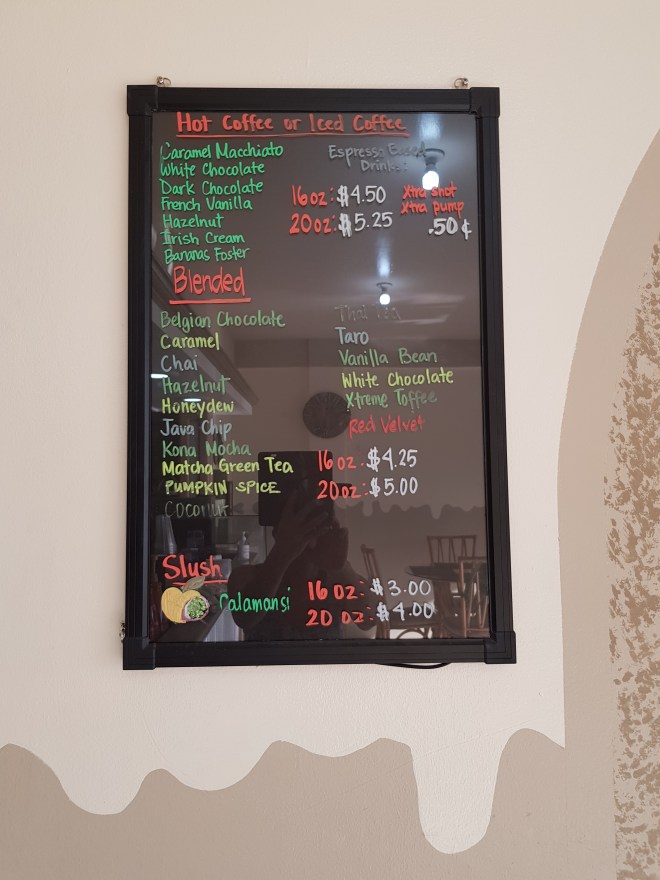 Hot Coffee or Iced Coffee
Caramel Macchiato
White Chocolate
Dark Chocolate
French Vanilla
Hazelnut
Irish Cream
Bananas Foster
Espresso Based
Drinks:
16oz: $4.50
20oz: $5.25
Xtra shot
Xtra pump
.50¢
Blended
Belgian Chocolate
Caramel
Chai
Hazelnut
Honeydew
Java Chip
Kona Mocha
Matcha Green Tea
PUMPKIN SPICE
COCONUT
Thai Tea
Taro
Vanilla Bean
White Chocolate
Xtreme Toffee
Red Velvet
16oz: $4.25
20oz: $5.00
Slush
Calamansi
16oz: $3.00
20oz: $4.00